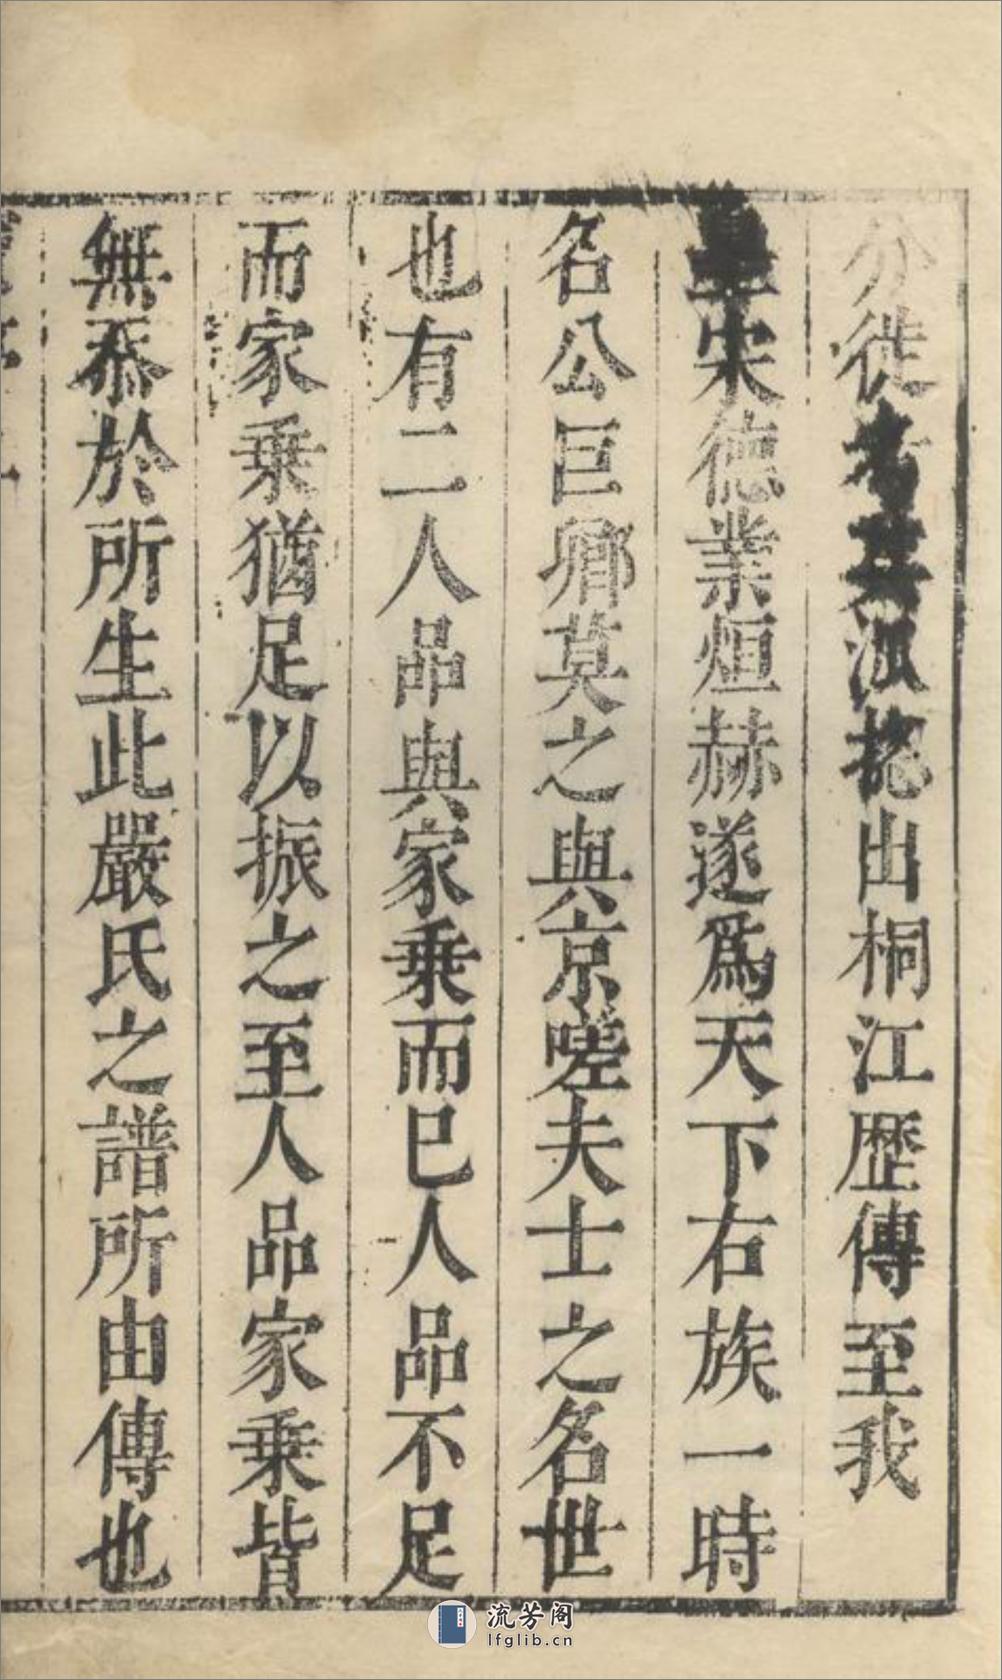 分徙考其派揔出桐江歷傳至我
皇宋德業烜赫遂爲天下右族一時
名公巨卿莫之與京嗟夫士之名世
也有二人品與家乗而已人品不足
而家乗猶足以振之至人品家乗皆
無忝於所生此嚴氏之譜所由傳也
流芳阁
lfglib.cn